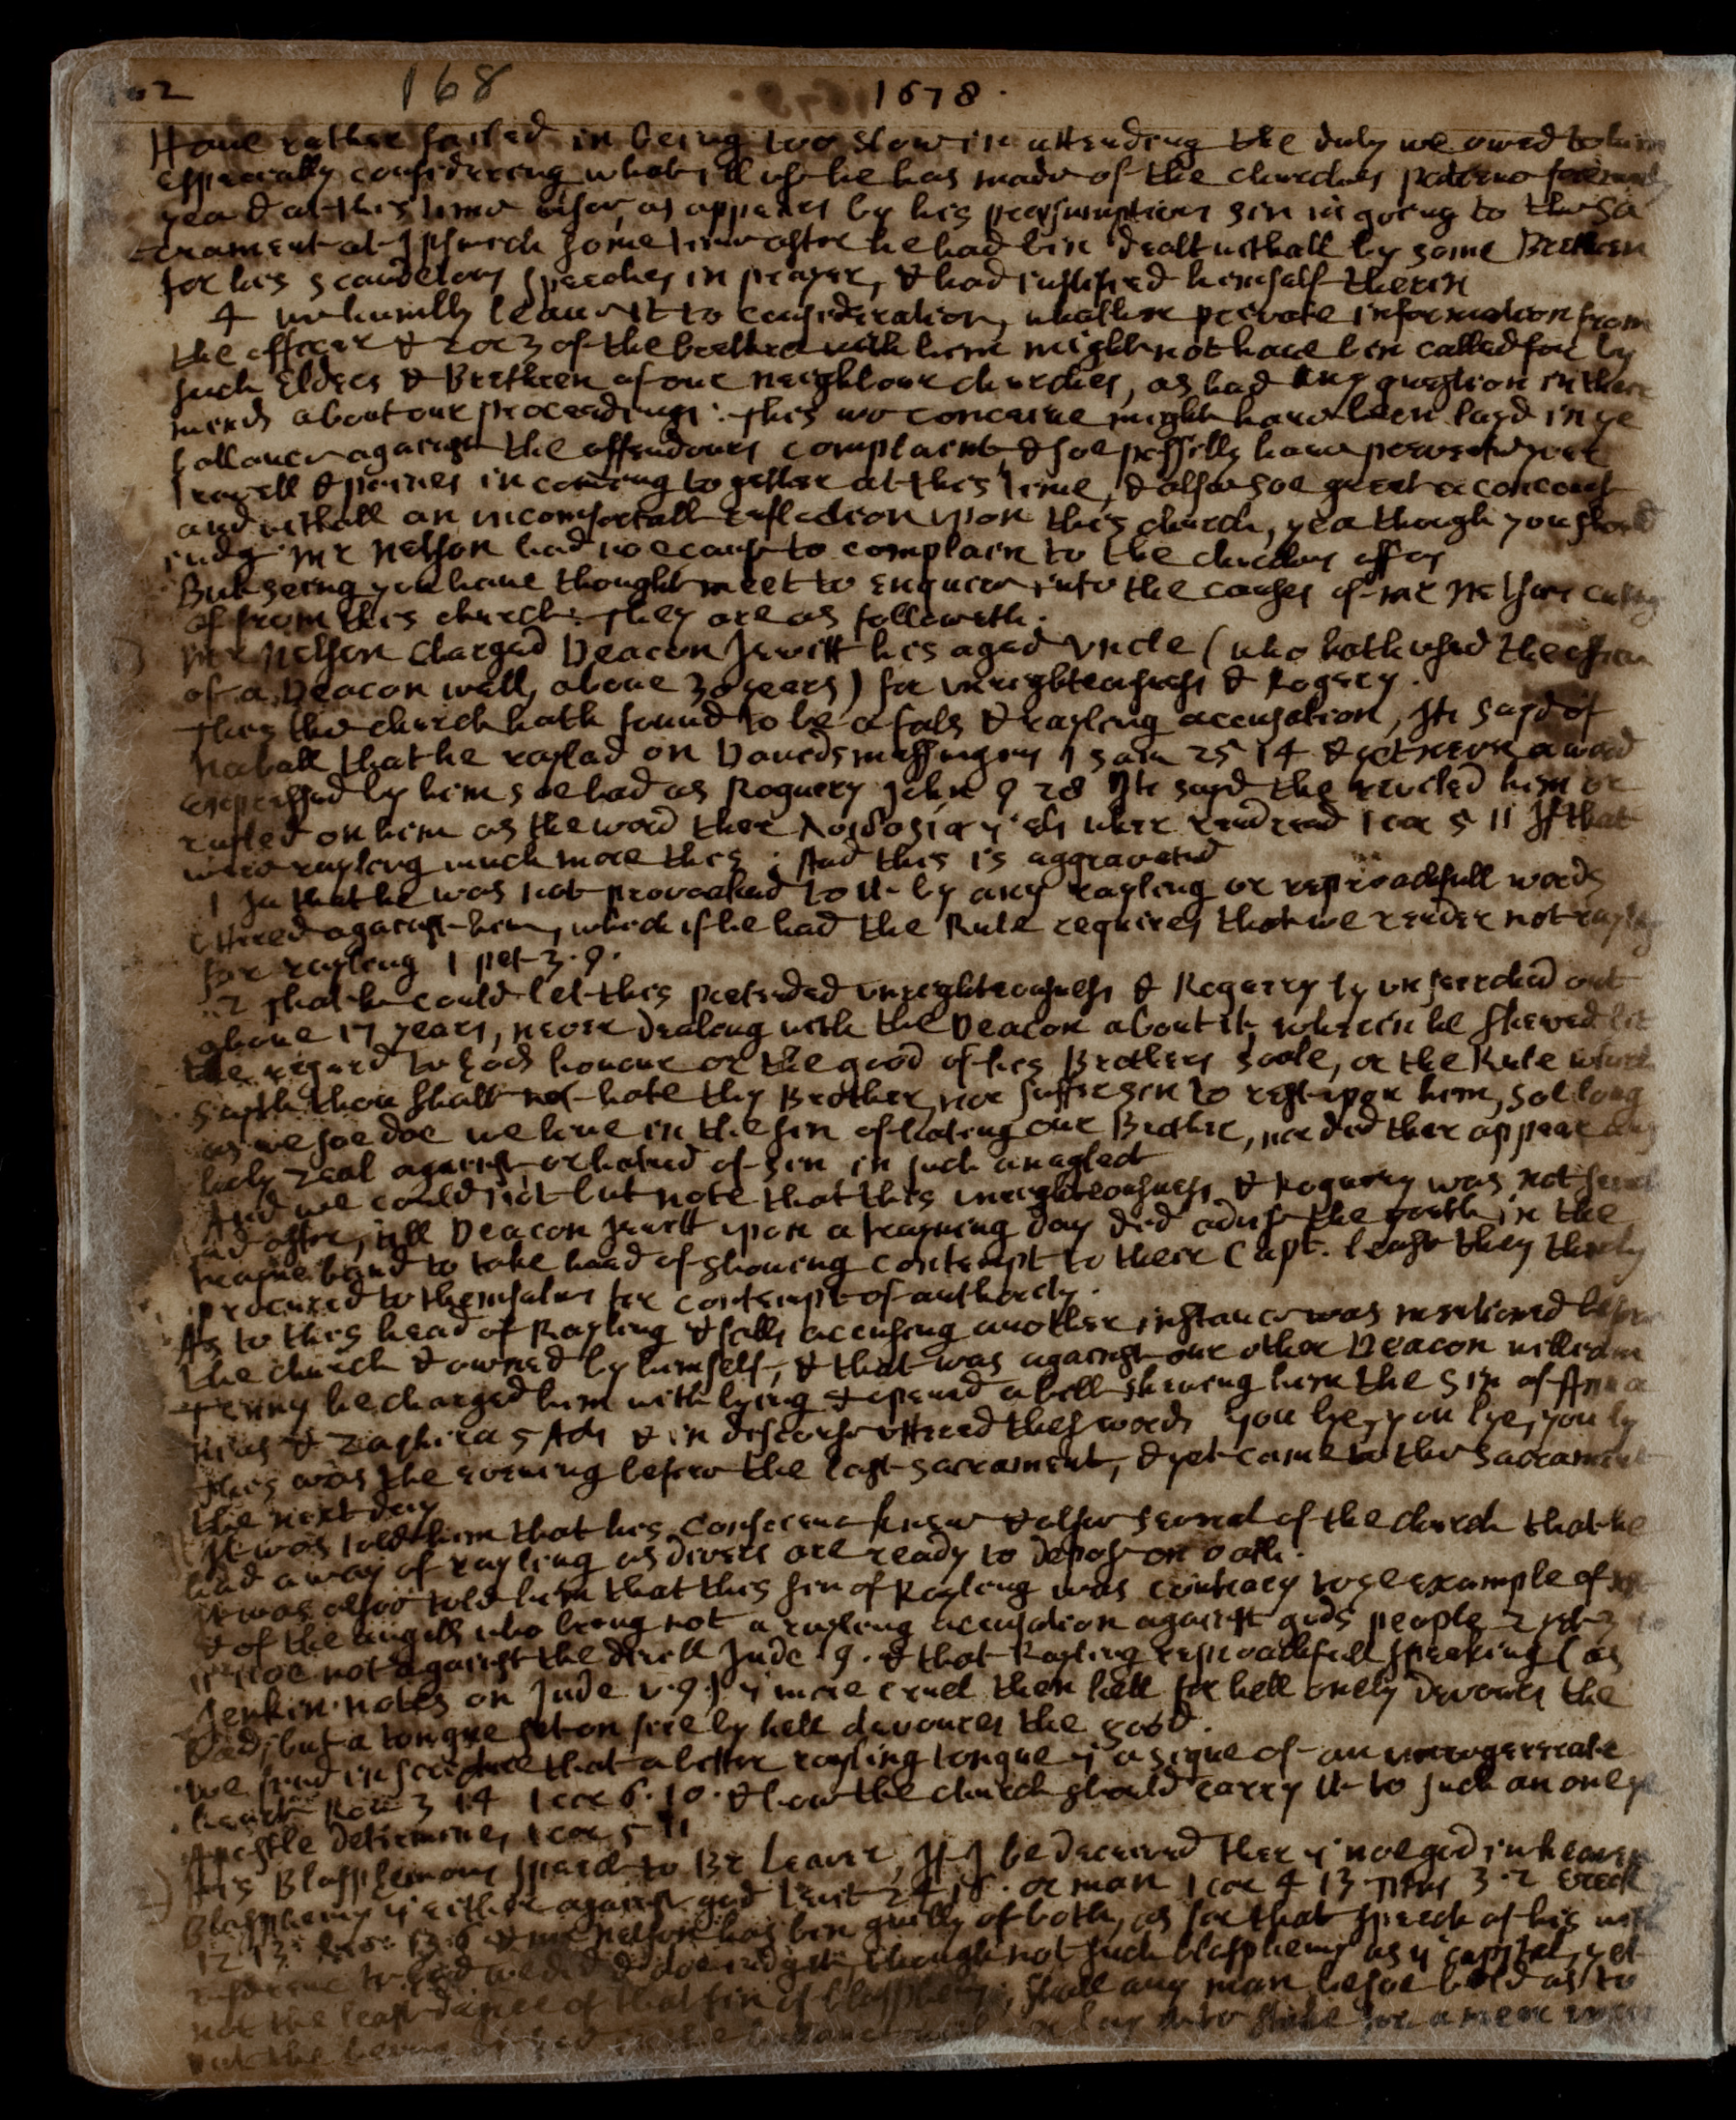 168 1678.
Haue rather failed in being too slow in attending the duty we owed to him
especially considering what ill use he has made of the churches patience
yea & at this time also, as appeares by his presumptious sin in going to the Sa
crament at Ipswich some time after he had bin dealt withall by some Brethren
for his scandelous speeches in prayer, & had iustified himself therin
4 we humbly leaue it to consideration, whether private information from
the officer & 2 or 3 of the brethren with him might not haue bin called for by
such Elders & Brethren of our neighbour churches, as had any question in there
minds about our proceedings: this we conceiue might haue been layd in ye
ballance against the offendours complaint & soe possibly haue prevented your
travell & paines in coming together at this time, & also soe great a concourse
and withall an uncomfortall reflection upon this church, yea though you should
iudg mr Nelson had noe cause to complain to the churches
But seing you haue thought meet to enquire into the causes of mr Nelsons cuting
of from this church: they are as followeth.
mr Nelson Charged Deacon Jewitt his aged Vncle (who hath used the office
of a Deacon well, aboue 30 years) for unrighteousness & Rogery.
This the church hath found to be a fals & rayleing accusation, It's sayd of
Naball that he rayled on Dauids messengers 1 sam 25 14 & yet never a word
expressed by him soe bad as Roguery John 9 28 Its sayd they reveiled him or
railed on him as the word ther is elswhere rendered 1 cor 5 11 If that
were rayleing much more this: And this is aggravated
1 In that he was not provoaked to it by any rayleing or reproachfull words
uttered against him, which if he had the Rule requires that we render not rayleing
for rayleing 1 pet 3.9.
2 That he could let this pretended unrighteousness & Rogerry ly unserched out
aboue 17 years, never dealeing with the Deacon about it, wherein he shewed lit
tle regard to gods honour or the good of his Brothers soule, or the Rule which
sayth thou shalt not hate thy Brother, nor suffer sin to rest upon him, soe long
as we soe doe we liue in the sin of hateing our Brother, nor did ther appear any
holy zeal against or hatred of sin in such a neglect
And we could not but note that this unrighteousness & Roguery was not
ad after, till Deacon Jewitt upon a trayning day did advise the youth in the
traine band to take heed of showing contempt to there Capt. least they therby
procured to themselves for contempt of authority.
As to this head of Rayleing & falls accuseing another instance was mentioned before
the church & owned by himself, & that was against our other Deacon william
Tenny he charged him with lying & opened a bible shewing him the sin of Ana
nias & Zaphira 5 Acts & in discourse uttered these words you lye, you lye, you ly
this was the evening before the last sacrament, & yet came to the Sacrament
the next day
It was told him that his Conscience knew & also severel of the church that he
had a way of rayleing as divers are ready to depose on oath.
it was also told him that this sin of Rayleing was contrary to ye example of
& of the angells who bring not a rayleing accusation against gods people 2 pet 2
11 noe not against the divell Jude 9. & that Rayleing reproachfull speaking (as
Jenkin notes on Jude v.9) is more cruel then hell for hell onely devoures the
bad, but a tongue set on fire by hell devoures the good.
we find in scripture that a bitter rayling tongue is a signe of an unregenerate
heart Rom 3 14 1 cor 6.10. & how the church should carry it to such an one ye
Apostle determines 1 cor 5 11
His Blasphemous speech to Br Leaver, If I be deceived ther is noe god in heaven
Blasphemy is either against god Levit 24 15. or man 1 cor 4 13 Titus 3.2
12 13. Rev: 13.6 & mr Nelson has bin guilty of both, as for that speech of his with
reference to god we did & doe iudge it though not such blasphemy as is capitel, yet
not the least degree of that sin of blasphemy; shall any man be soe bold as to
put the being of god in the ballance